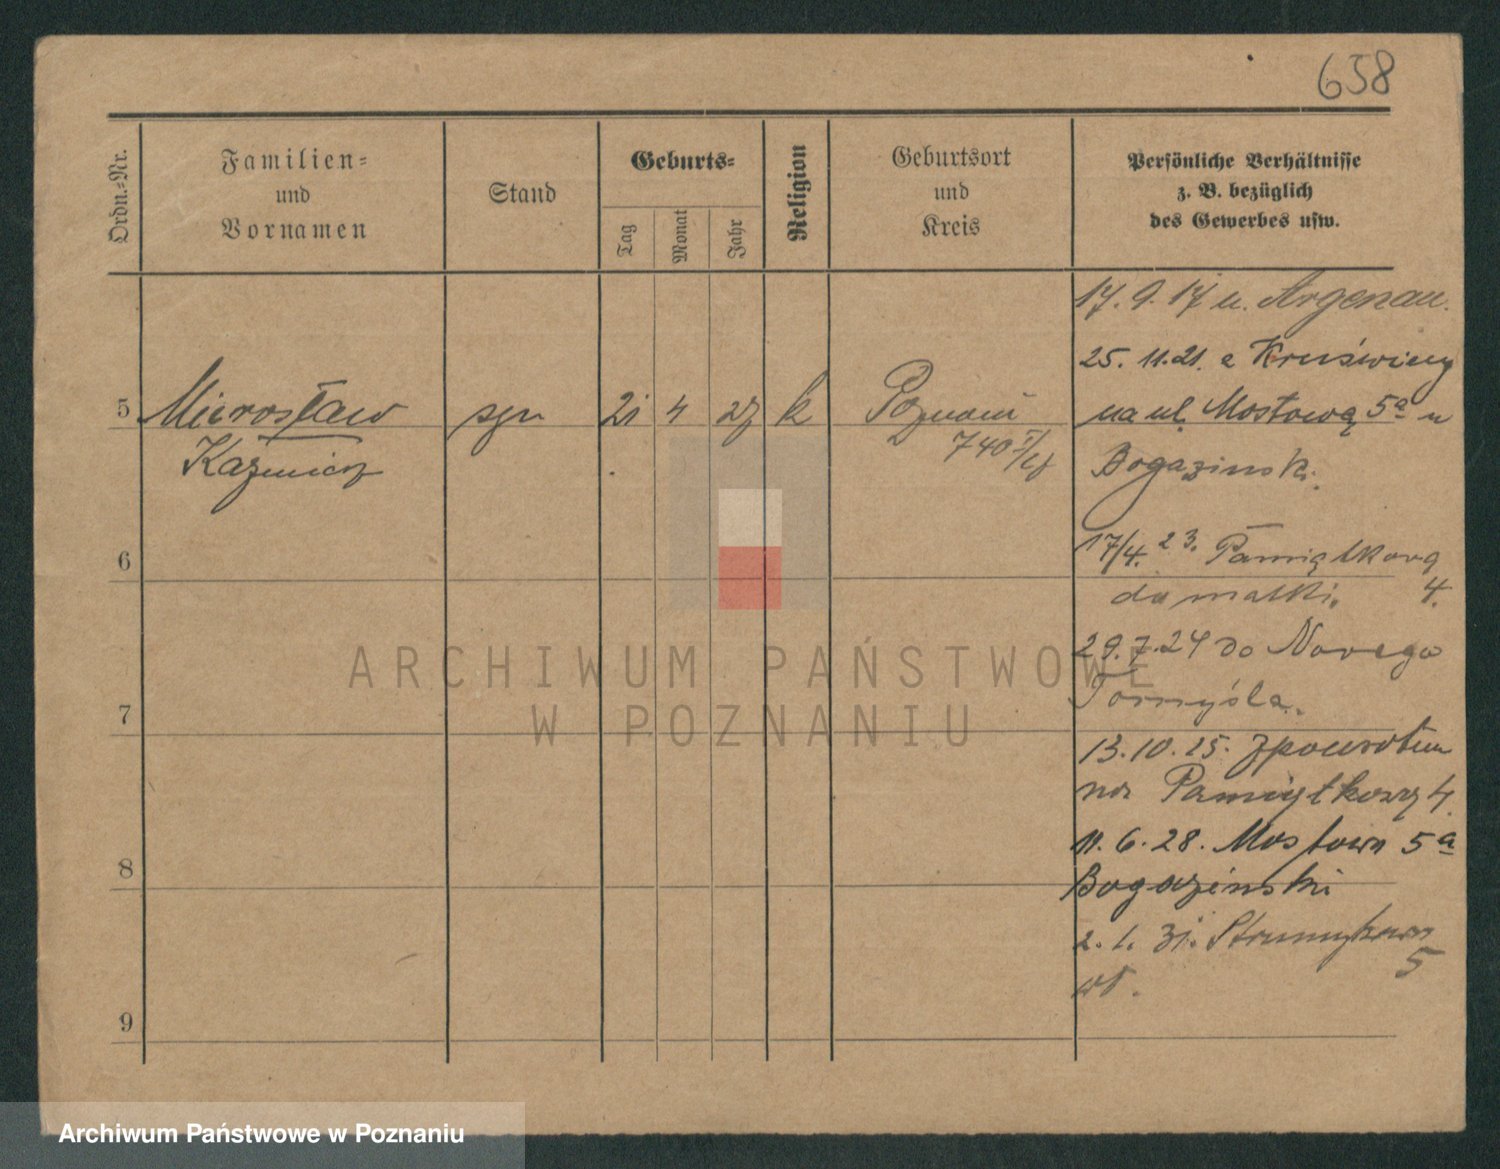 658
Ordn.-Nr.
Familien-
und
Vornamen
Stand
Geburts-
Tag
Monat
Jahr
Religion
Geburtsort
und
Kreis
Persönliche Verhältnisse
z. B. bezüglich
des Gewerbes usw.
17. 9. 17 n. Argenau.
25. 11. 21. z Kruświcy
5 Mirosław syn 21 4 27 k Poznań na ul. Mostową 5a u
Kazmierz 740
Bogazinski.
17/4. 23. Pamiątkową
6
do matki. 4.
29. 7. 24 do Nowego
Tomyśla.
7
13. 10. 25. zpowrotem
na Pamiątkową 4.
11. 6. 28. Mostowa 5a
8
Bogazinski
2. 1. 31. Strumykowa
5
9
ARCHIWUM PAŃSTWOWE
W POZNANIU
Archiwum Państwowe w Poznaniu